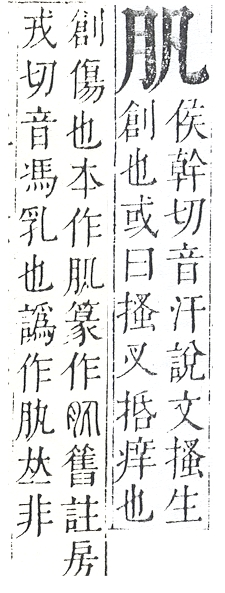 肒
侯幹切音汗說文搔生
創也或曰搔叉揩痒也
創傷也本作篆作舊註房
戎切音馮乳也譌作𠀤非